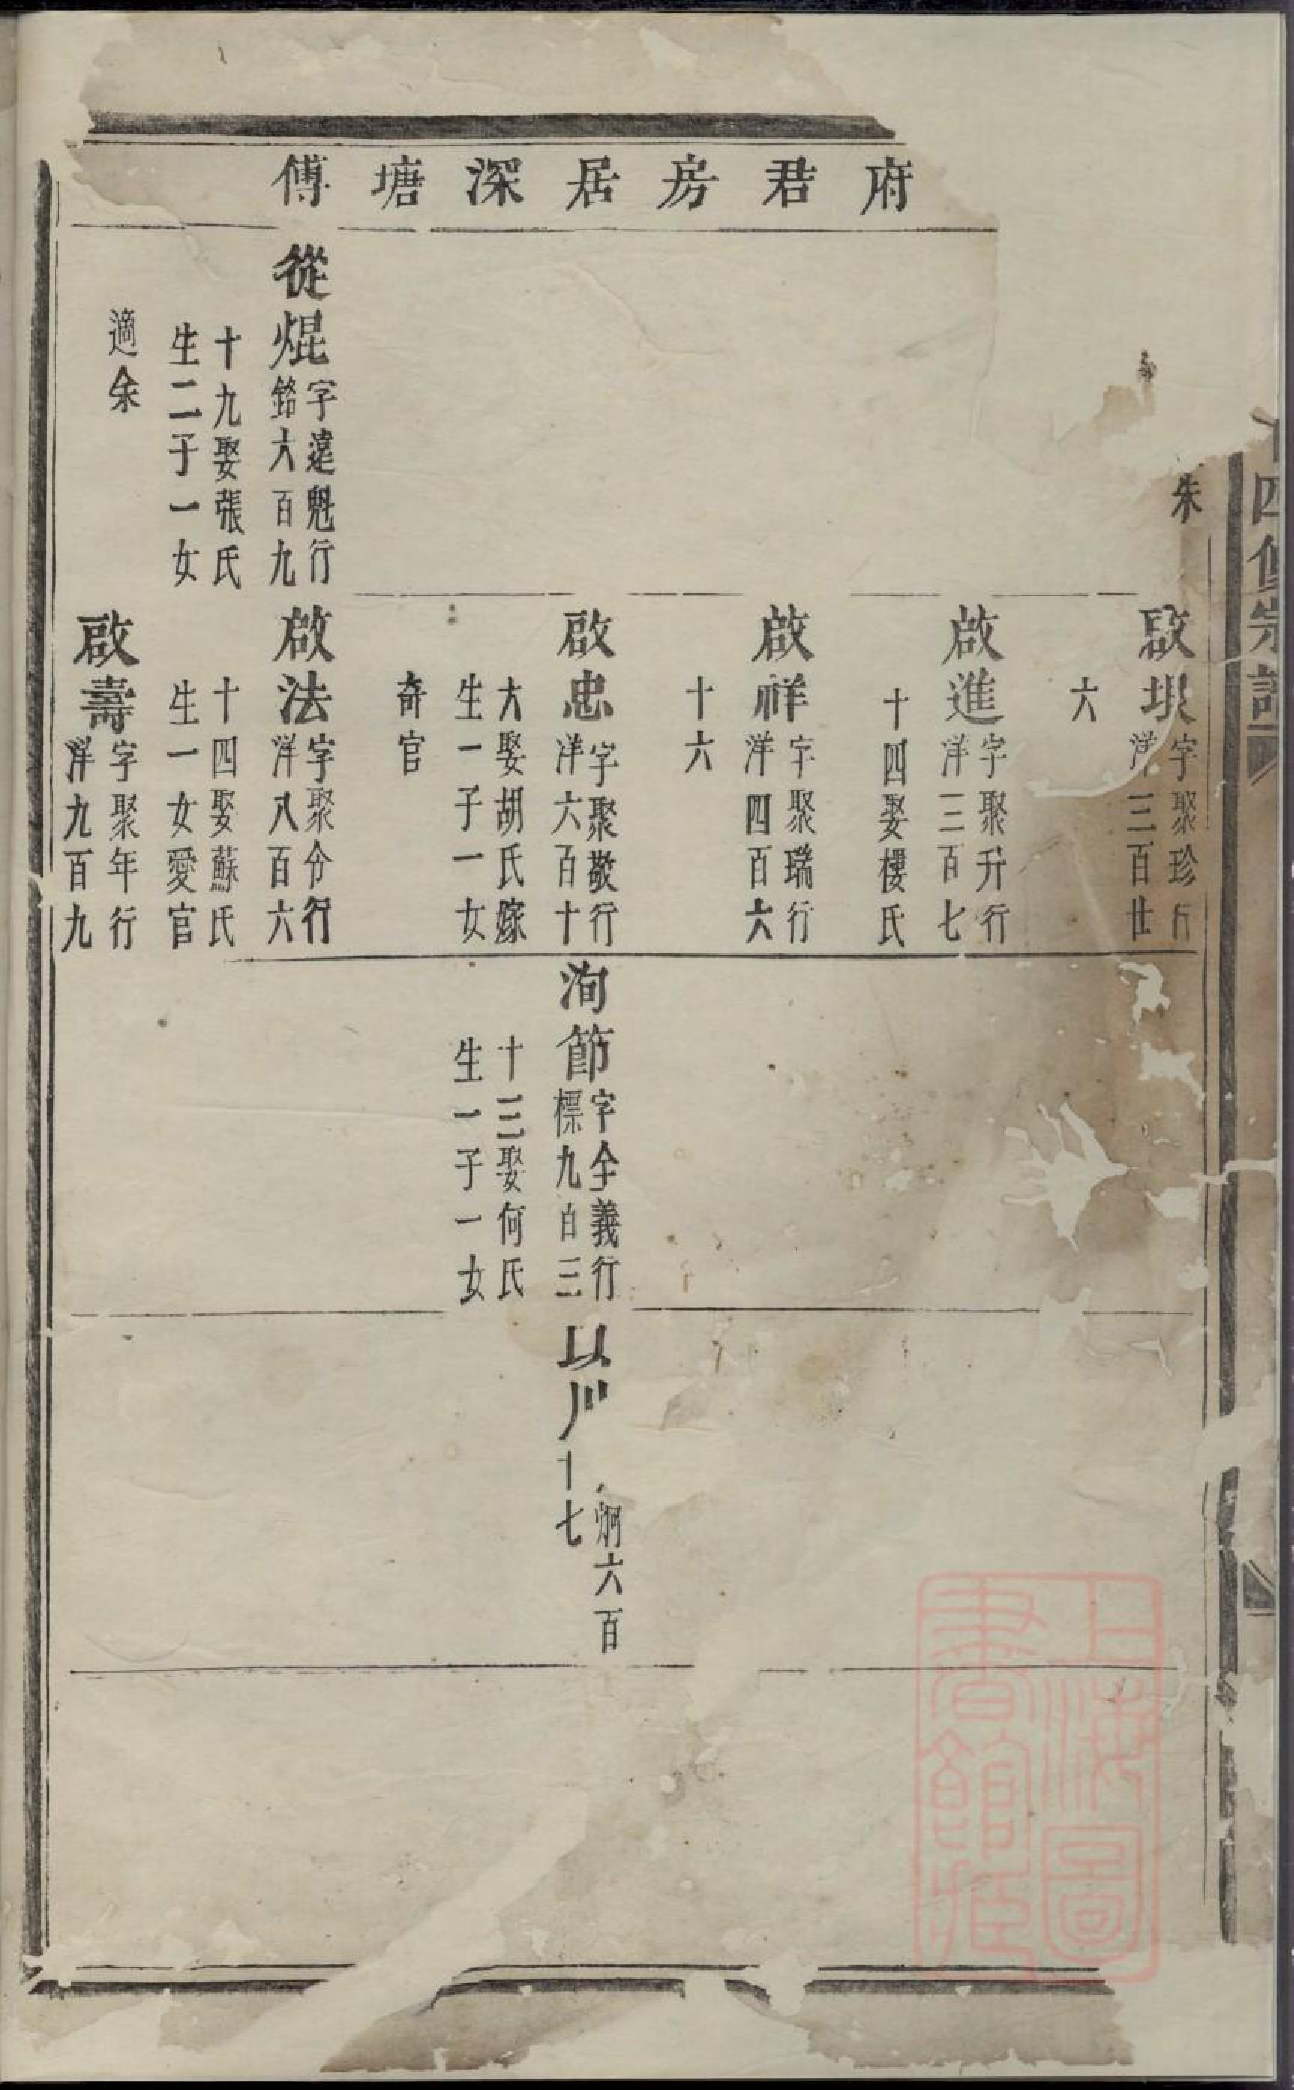 四修宗譜
府君房居深塘傅
朱
從焜
字達魁行
銘六百九
十九娶張氏
生二子一女
適余
啟垠
字聚珍行
洋三百廿
六
啟進
字聚升行
洋三百七
十四娶樓氏
啟祥
字聚瑞行
洋四百六
十六
啟忠
字聚敬行
洋六百十
六娶胡氏嫁
生一子一女
奇官
啟法
字聚令行
洋八百六
十四娶蘇氏
生一女愛官
啟壽
字聚年行
洋九百九
洵節
字全義行
標九百三
十三娶何氏
生一子一女
以川
炯六百
十七
上海圖
書館藏